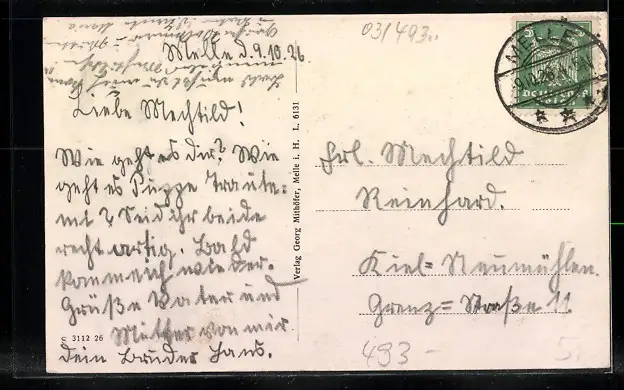 031493..
Melle d. 9.10.26.
Liebe Mechtild!
Wie geht es dir? Wie
geht es Puppe Traute=
mt? Seid ihr beide
recht artig. Bald
komm ich wieder.
Grüße Vater und
Mutter von mir
dein Bruder Hans.
C 3112 26
Verlag Georg Mithöfer, Melle i. H. L. 6131
5
MELLE
DEUTSCHES
Frl. Mechtild
Reinhard.
Kiel= Neumühlen.
Grenz= Straße 11.
493-